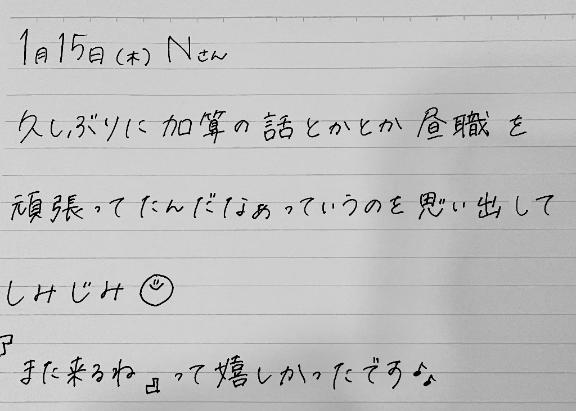 1月15日(木) Nさん
久しぶりに加算の話とかとか昼職を
頑張ってたんだなぁっていうのを思い出して
しみじみ☺
『また来るね』って嬉しかったです♪♪